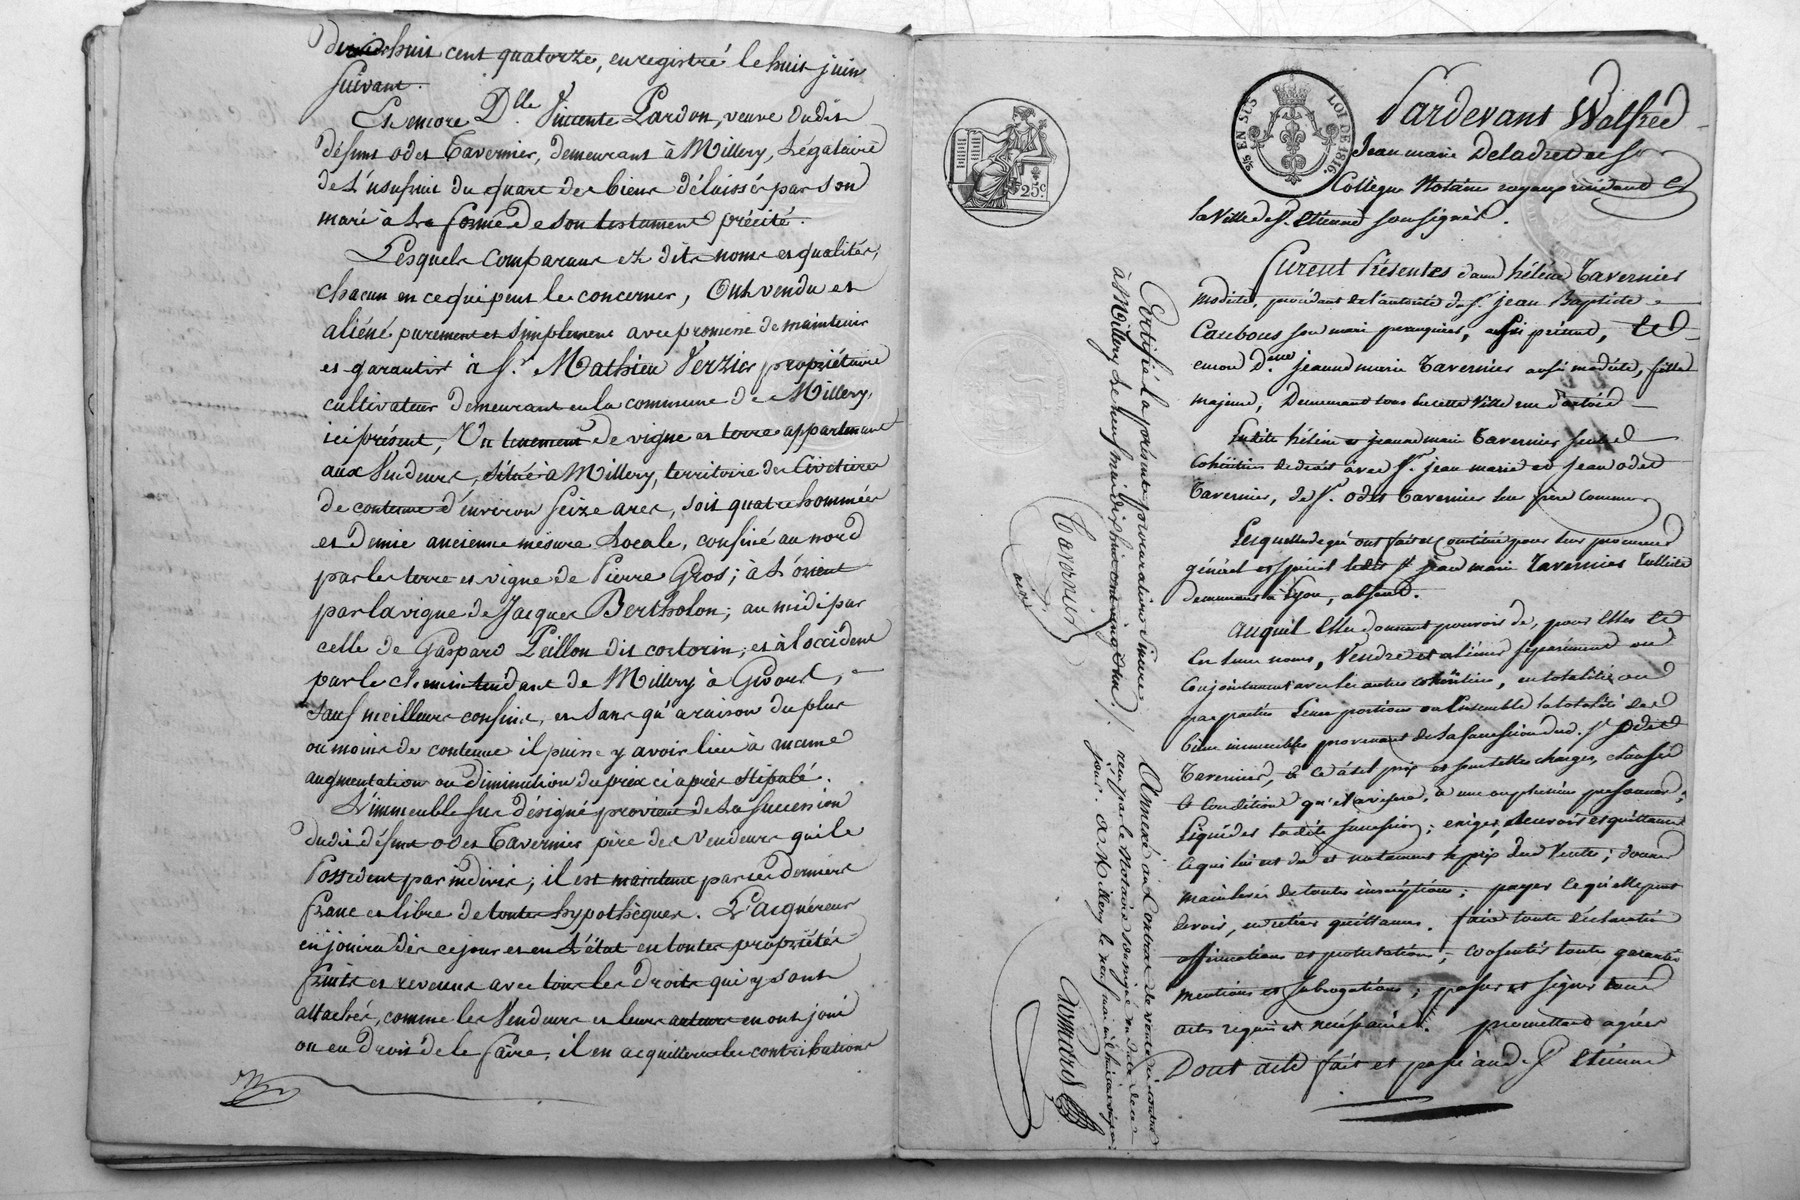 dernier huit cent quatorze, enregistré le huit juin
suivant.
Et encore D.lle Vincente Pardon, veuve dudit
défunt odet Tavernier, demeurant à Millery, Légataire
de L'usufruit du quart des biens délaissés par son
mari à La forme de son testament précité.
Lesquels comparans ez dits noms et qualités,
chacun en ce qui peut les concerner, Ont vendu et
aliéné purement et simplement avec promesse de maintenir
et garantir à S.r Mathieu Verzier propriétaire
cultivateur demeurant en la commune de Millery,
ici présent, Un tenement de vigne et terre appartenant
aux Vendeurs, situé à Millery, territoire des
de contenue d'environ Seize ares, soit quatre hommées
et demie ancienne mesure Locale, confiné au nord
par les terre et vigne de Pierre Gros; à L'orient
par la vigne de Jacques Bertholon; au midi par
celle de Gaspard Pillon dit costorin; et à l'occident
par le chemin tendant de Millery à Givors,
sauf meilleurs confins, et sans qu'à raison du plus
ou moins de contenue il puisse y avoir lieu à aucune
augmentation ou diminution du prix ci après stipulé.
L'immeuble sus désigné provient de La succession
dudit défunt odet Tavernier père des vendeurs qui le
Possèdent par indivis; il est maintenu par ces derniers
franc et libre de toutes hypothèques. L'acquéreur
en jouira dès ce jour et en L'état en toutes propriétés
fruits et revenus avec tous les droits qui y sont
attachés, comme les Vendeurs et leurs auteurs en ont joui
ou eu droit de le faire, il en acquittera les contributions
25c
EN SUS
LOI DE 1816.
Pardevant Walfred
Jean marie Deladret et S
Collègue Notaires royaux résidants à
la Ville de S.t Etienne soussignés.
Furent Présentes dame hélène Tavernier
modiste, procédant de l'autorité du S.r jean Baptiste
Caubous son mari perruquier, ici présent, et
encore D.me jeanne marie Tavernier aussi modiste, fille
majeure, Demeurant tous en cette Ville rue d'artois
Lesdites hélène et jeanne marie Tavernier seules
cohéritières de droit avec S.r jean marie et jean odet
Tavernier, de S.r odet Tavernier leur père commun
Lesquelles de gré ont fait et constitué pour leur procureur
général et spécial ledit S.r jean marie Tavernier Tulliste
demeurant à Lyon, absent.
Auquel Elles donnent pouvoir de, pour Elles et
en leurs noms, Vendre et aliéner séparément ou
conjointement avec les autres cohéritiers, en totalité ou
par parties Leurs portions ou l'ensemble la totalité des
biens immeubles provenant de la succession dud. S.r Odet
Tavernier, à ce à tel prix et sous telles charges, clauses
& conditions qu'il avisera, à une ou plusieurs personnes;
Liquider ladite succession; exiger, recevoir et quittancer
ce qui lui est dû et notamment le prix desd Ventes; donner
mainlevée de toutes inscriptions; payer ce qu'elle peut
devoir, en retirer quittances. faire toute déclaration
affirmations et protestations; consentir toute garantie
mentions et subrogations; passer et signer tous
actes requis et nécessaires. promettant agréer
Dont acte fait et passé aud. S.t Etienne
Certifié La présente procuration Sincère
à Millery Le neuf mai dix huit cent vingt
Tavernier
ainé
Annexé au Contrat de vente ci contre
reçu par le Notaire soussigné en date de ce
jour. à Millery le neuf mai mil huit cent vingt